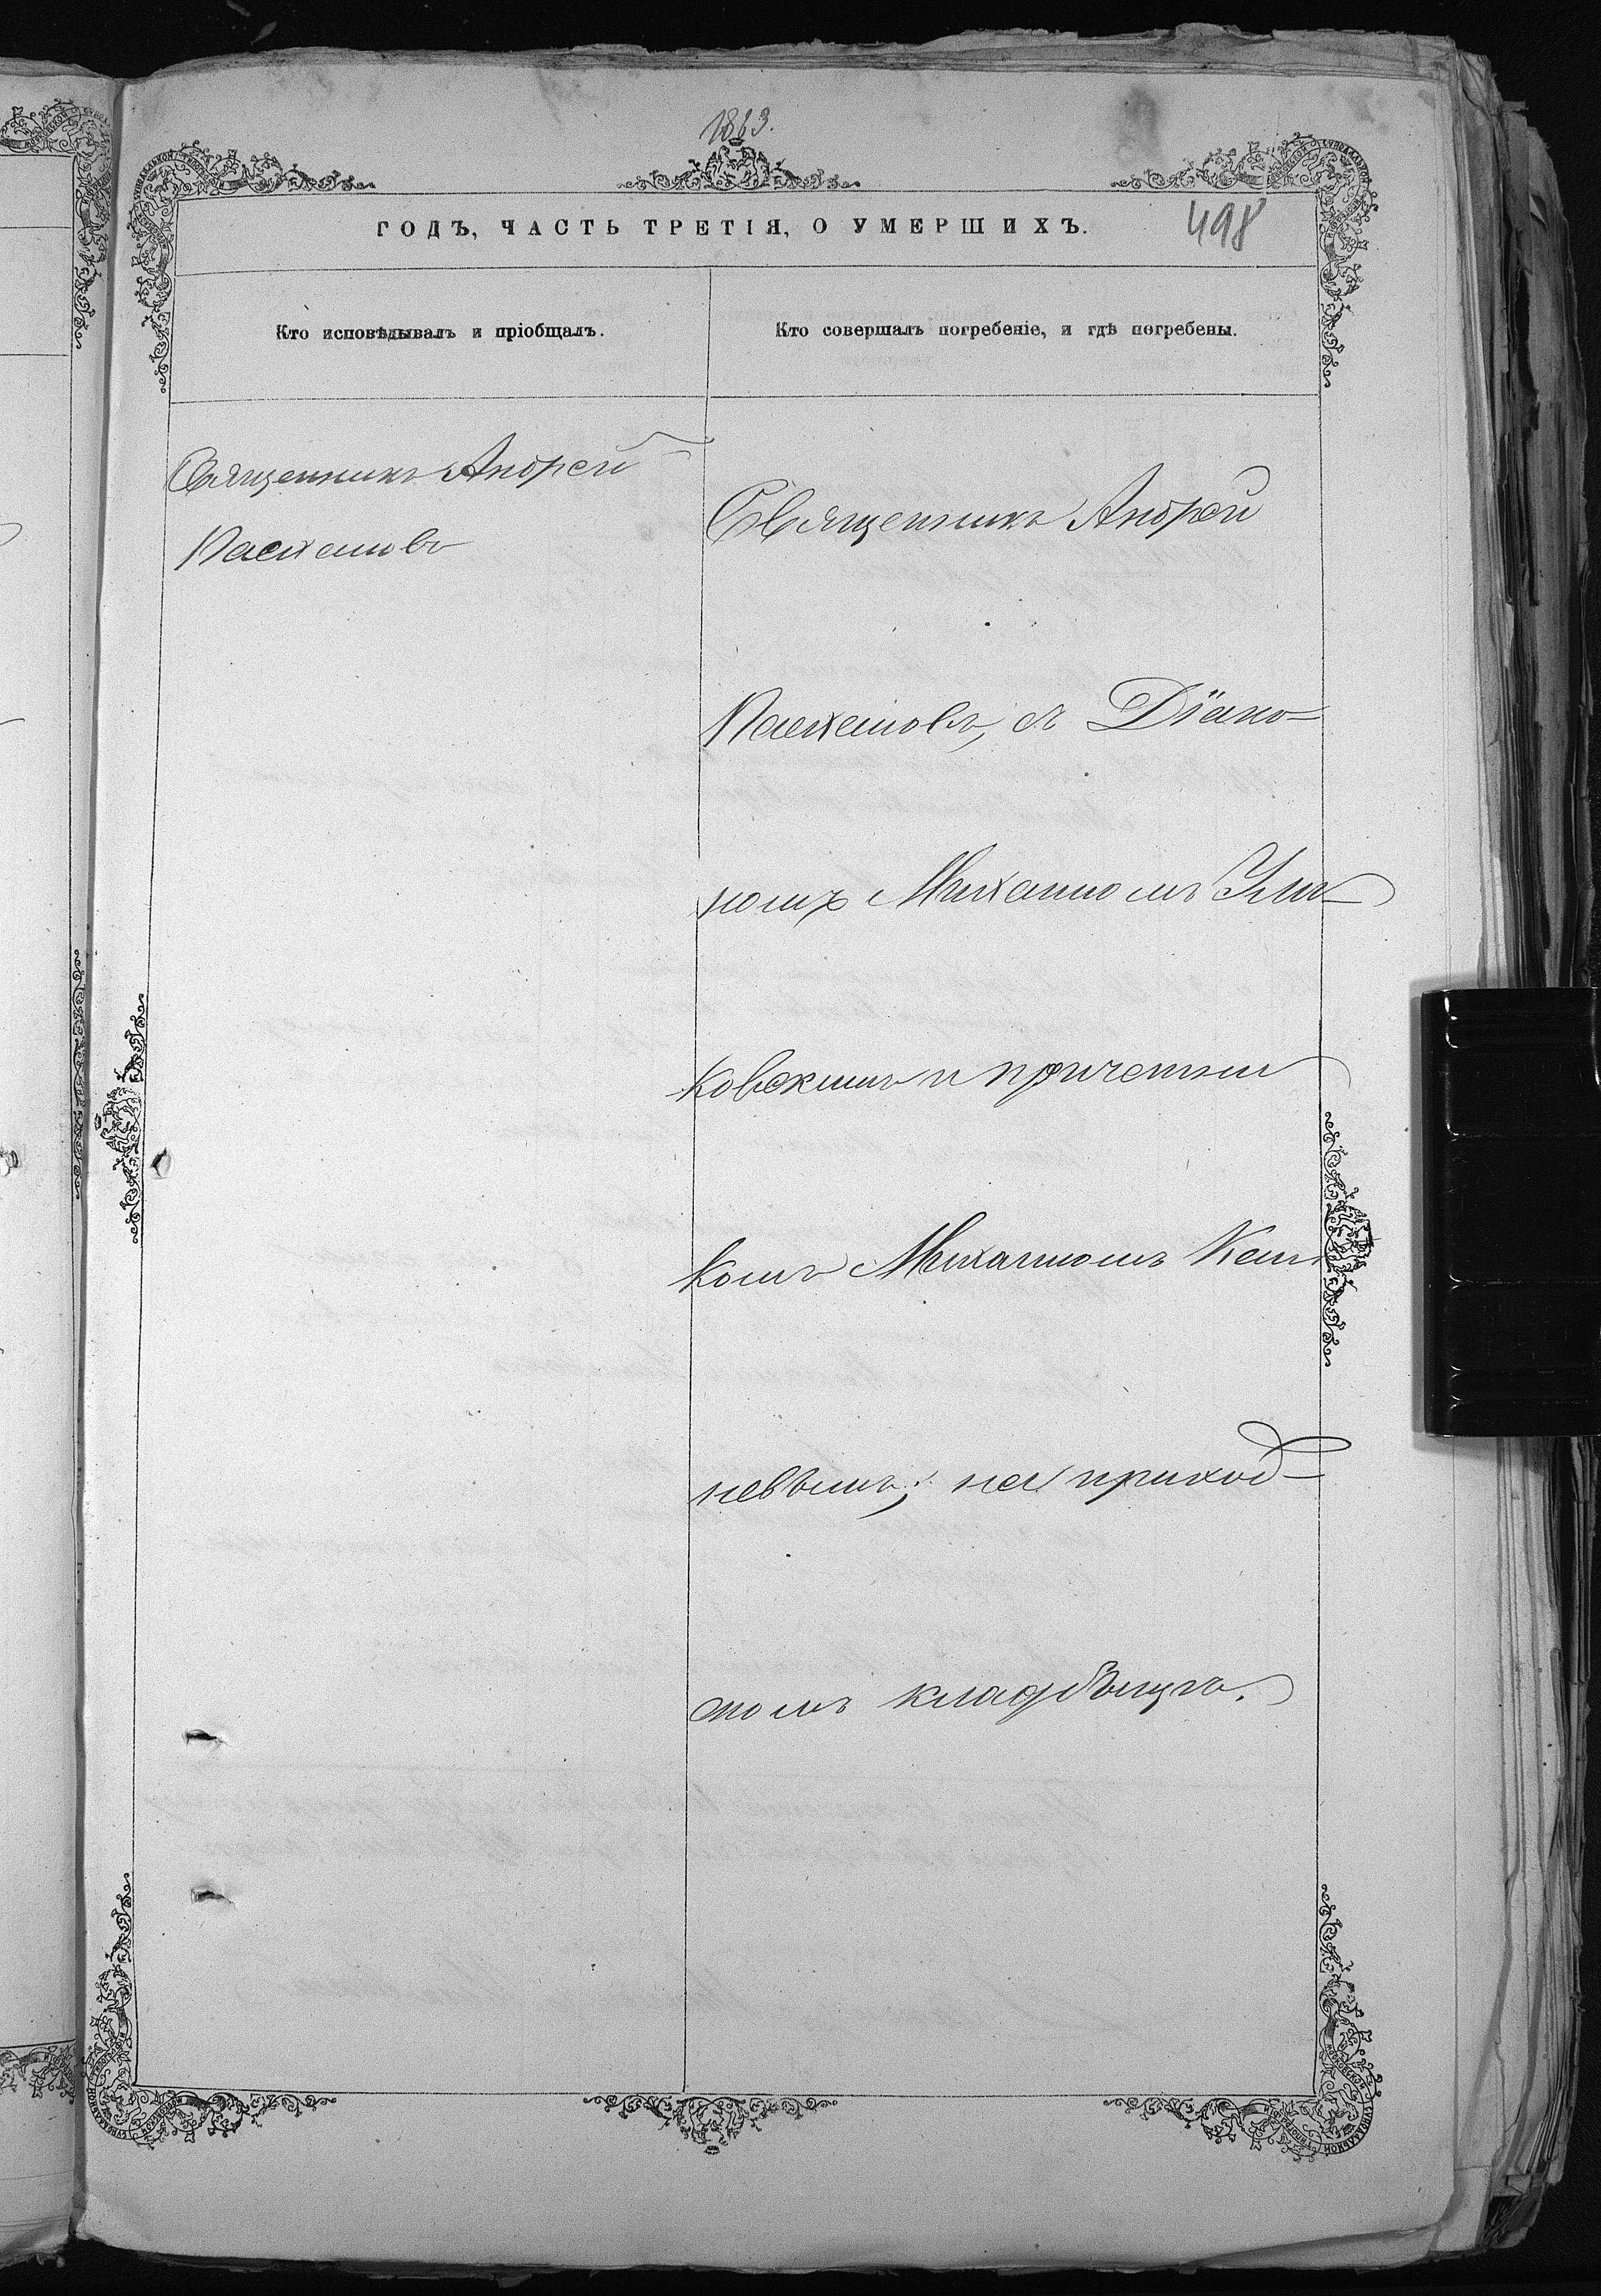 1883.
ГОДЪ, ЧАСТЬ ТРЕТІЯ, О УМЕРШИХЪ.
498
Кто исповѣдывалъ и пріобщалъ.
Кто совершалъ погребеніе, и гдѣ погребены.
Священникъ Андрей
Священникъ Андрей
съ Діако-
номъ Михаиломъ
ковскимъ и причетни
комъ Михаиломъ
невымъ; на приход-
скомъ кладбищѣ.